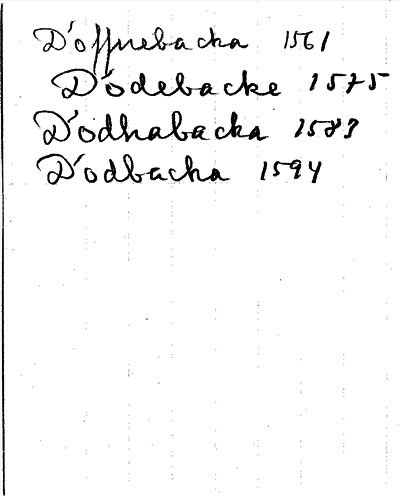 D'offnebacka 1561
D'odebacke 1575
D'odhabacka 1583
D'odbacka 1594